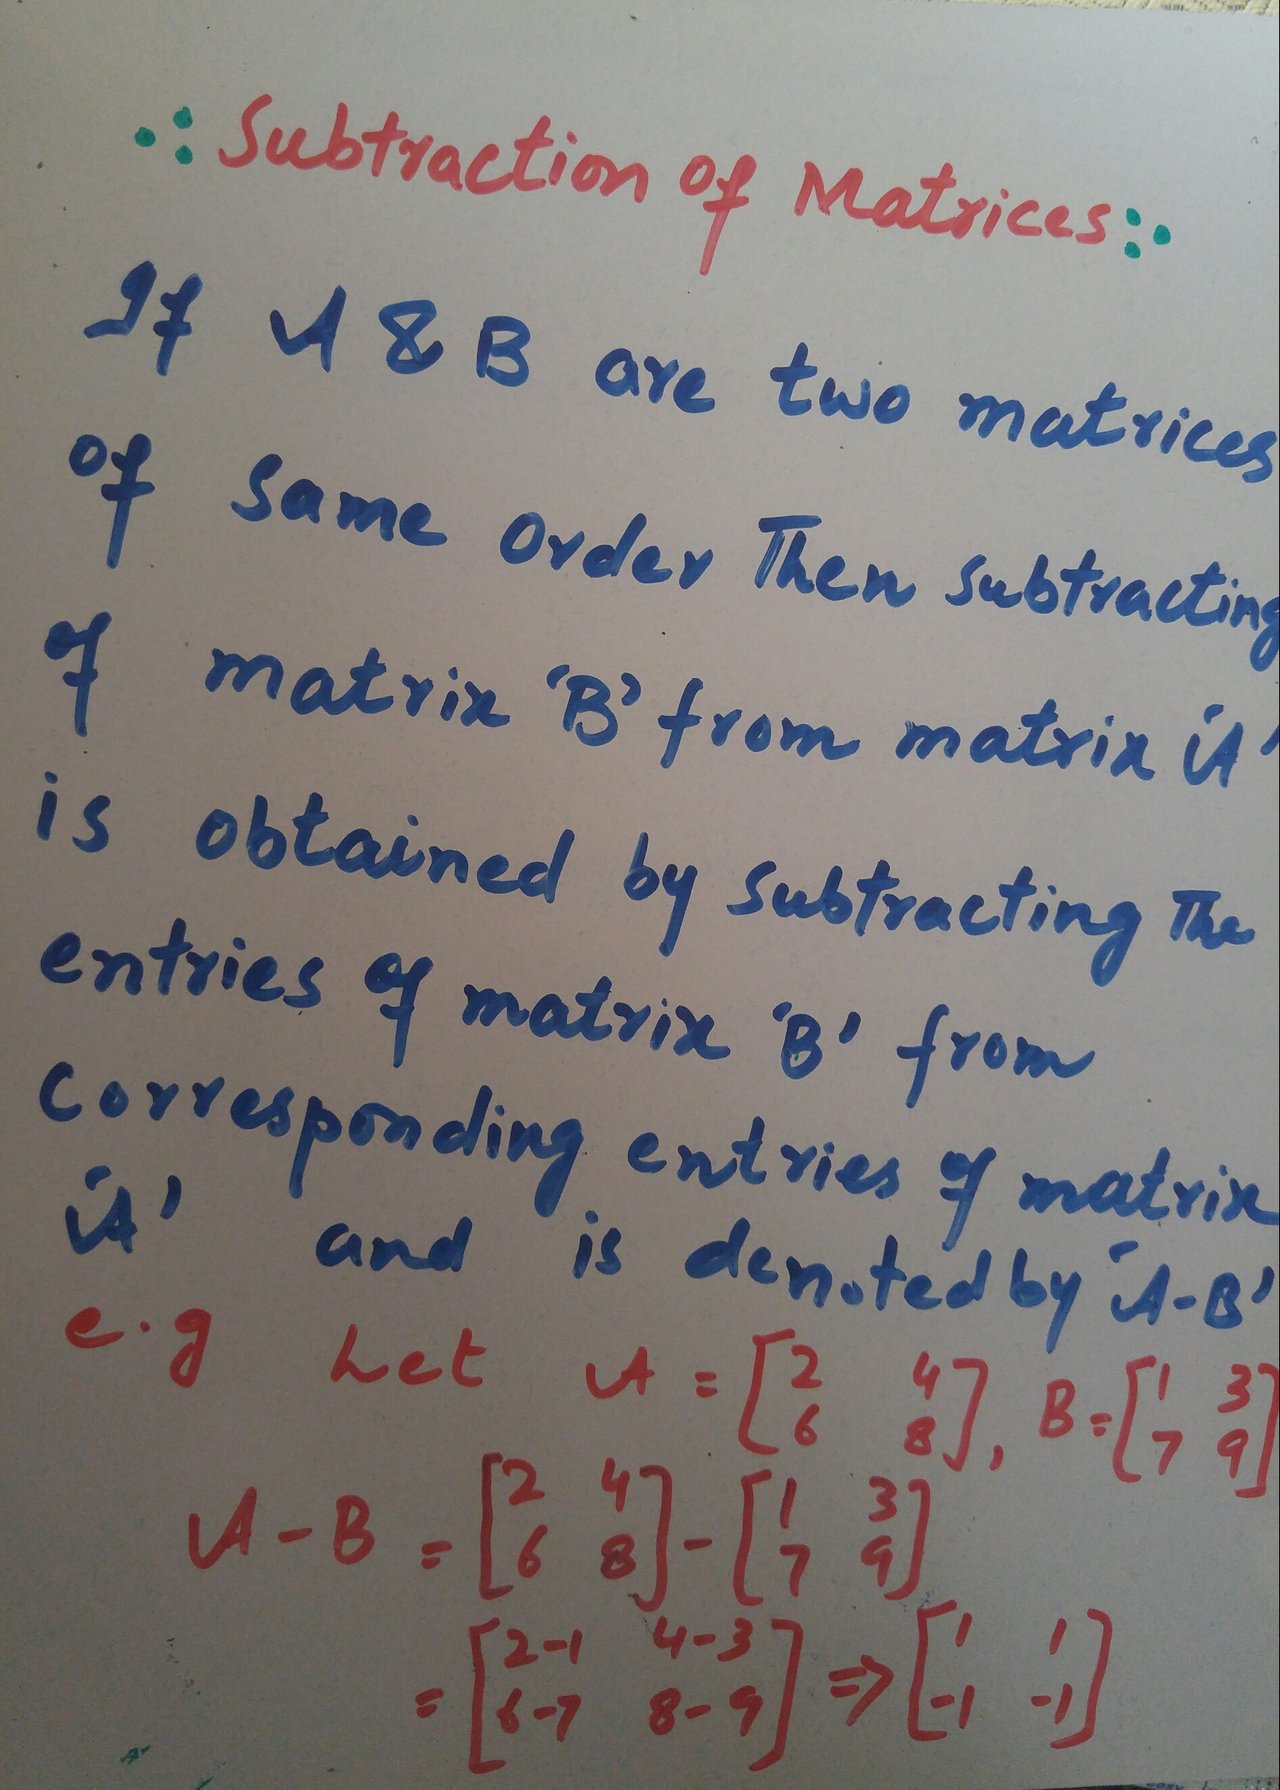 ∴ Subtraction of Matrices :·
If A & B are two matrices
of same order Then subtracting
of matrix 'B' from matrix 'A'
is obtained by subtracting The
entries of matrix 'B' from
Corresponding entries of matrix
'A' and is denoted by 'A-B'
e.g Let A = [2 4 6 8], B = [1 3 7 9]
A - B = [2 4 6 8] - [1 3 7 9]
= [2-1 4-3 6-7 8-9] ⇒ [1 1 -1 -1]